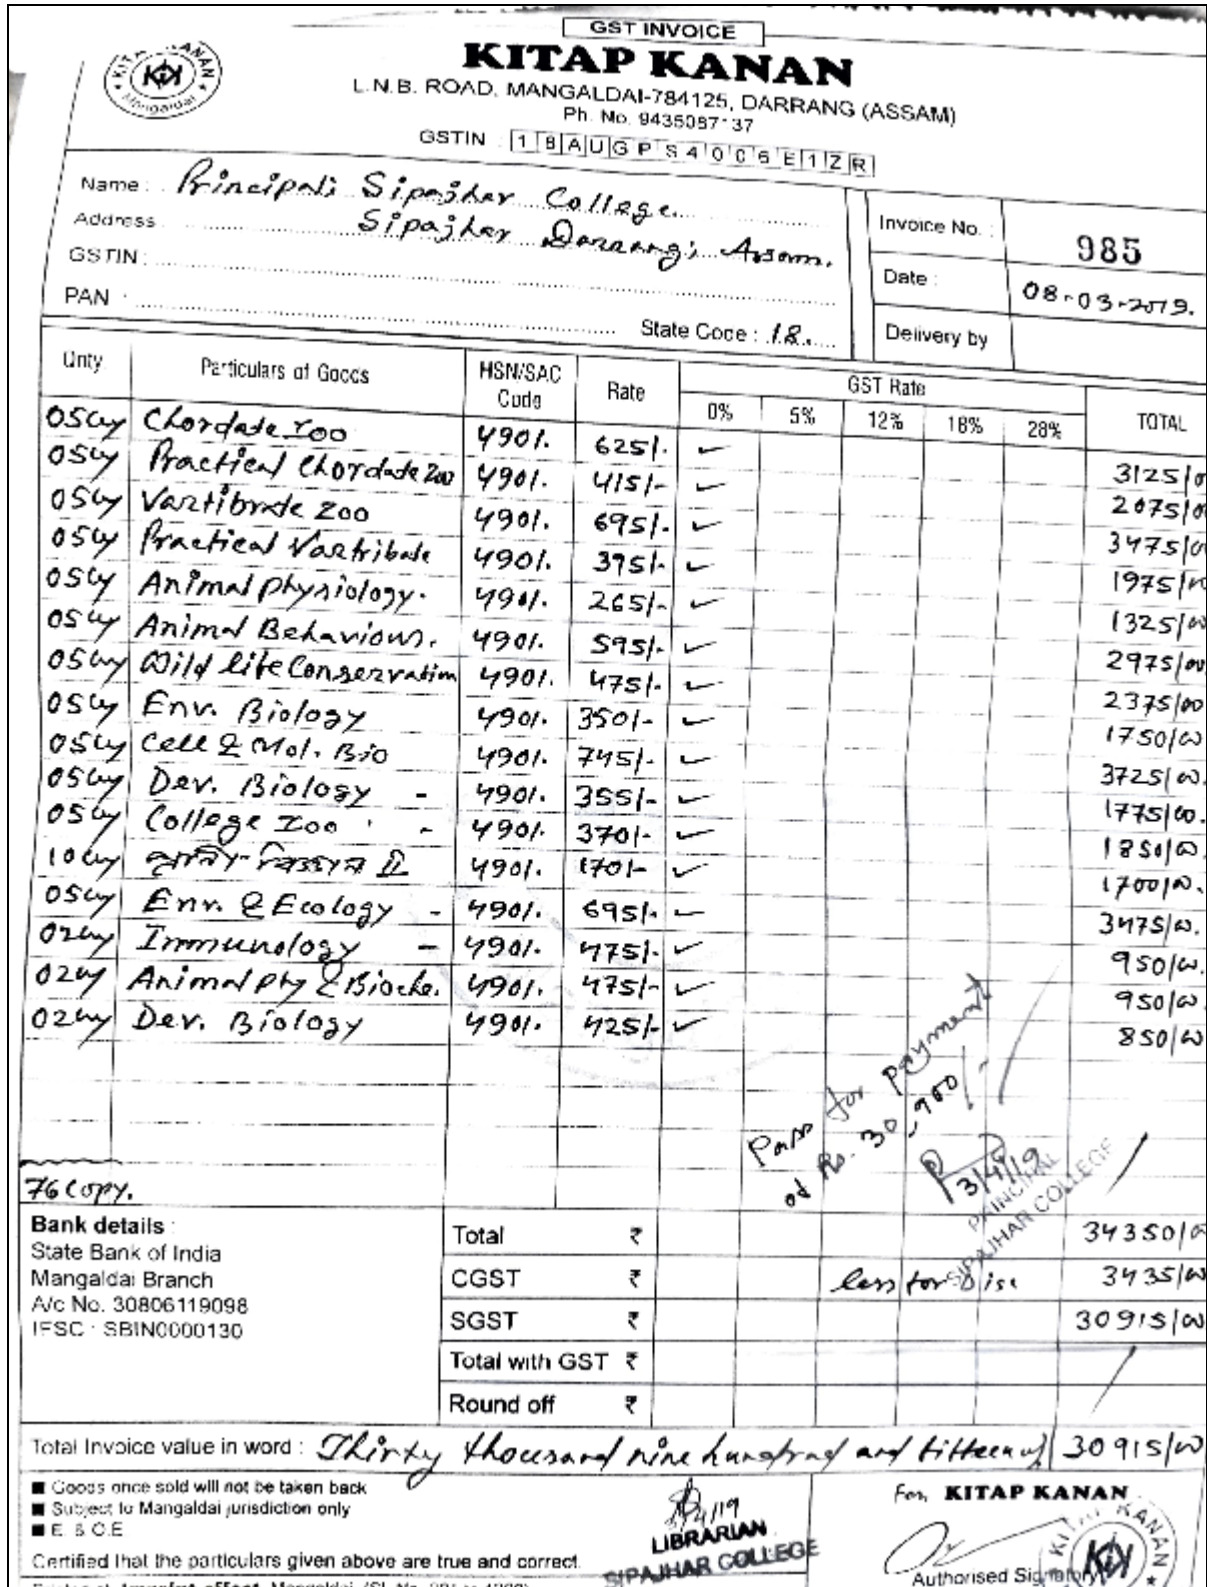 GST INVOICE
KITAP KANAN
L.N.B. ROAD, MANGALDAI-784125, DARRANG (ASSAM)
Ph. No. 9435087137
GSTIN : 18AUGPS4006E1ZR
Name : Principal; Sipajhar College
Address Sipajhar Darrang; Assam.
GSTIN :
PAN :
State Code : 18.
Invoice No. : 985
Date : 08-03-2019.
Delivery by
Qnty. Particulars of Goods HSN/SAC Code Rate GST Rate 0% 5% 12% 18% 28% TOTAL
05 Chordate Zoo 4901. 625/- ✓ 3125/00
05 Practical Chordate Zoo 4901. 415/- ✓ 2075/00
05 Vartibrate Zoo 4901. 695/- ✓ 3475/00
05 Practical Vartribate 4901. 395/- ✓ 1975/00
05 Animal Physiology. 4901. 265/- ✓ 1325/00
05 Animal Behaviour. 4901. 595/- ✓ 2975/00
05 Wild life Conservation 4901. 475/- ✓ 2375/00
05 Env. Biology 4901. 350/- ✓ 1750/00
05 Cell & Mol. Bio 4901. 745/- ✓ 3725/00.
05 Dev. Biology - 4901. 355/- ✓ 1775/00.
05 College Zoo - 4901. 370/- ✓ 1850/00.
10 II 4901. 170/- ✓ 1700/00.
05 Env. & Ecology - 4901. 695/- ✓ 3475/00.
02 Immunology - 4901. 475/- ✓ 950/00.
02 Animal Phy & Bioche. 4901. 475/- ✓ 950/00.
02 Dev. Biology 4901. 425/- ✓ 850/00
Pass for payment
of Rs. 30,900/-
3/4/19
PRINCIPAL
SIPAJHAR COLLEGE
76 Copy.
Bank details :
State Bank of India
Mangaldai Branch
A/c No. 30806119098
IFSC : SBIN0000130
Total ₹ 34350/00
CGST ₹ less for Disc 3435/00
SGST ₹ 30915/00
Total with GST ₹
Round off ₹
Total Invoice value in word : Thirty thousand nine hundred and fifteen 30915/00
■ Goods once sold will not be taken back
■ Subject to Mangaldai jurisdiction only
■ E. & O.E.
Certified that the particulars given above are true and correct.
LIBRARIAN
SIPAJHAR COLLEGE
For, KITAP KANAN
Authorised Signatory